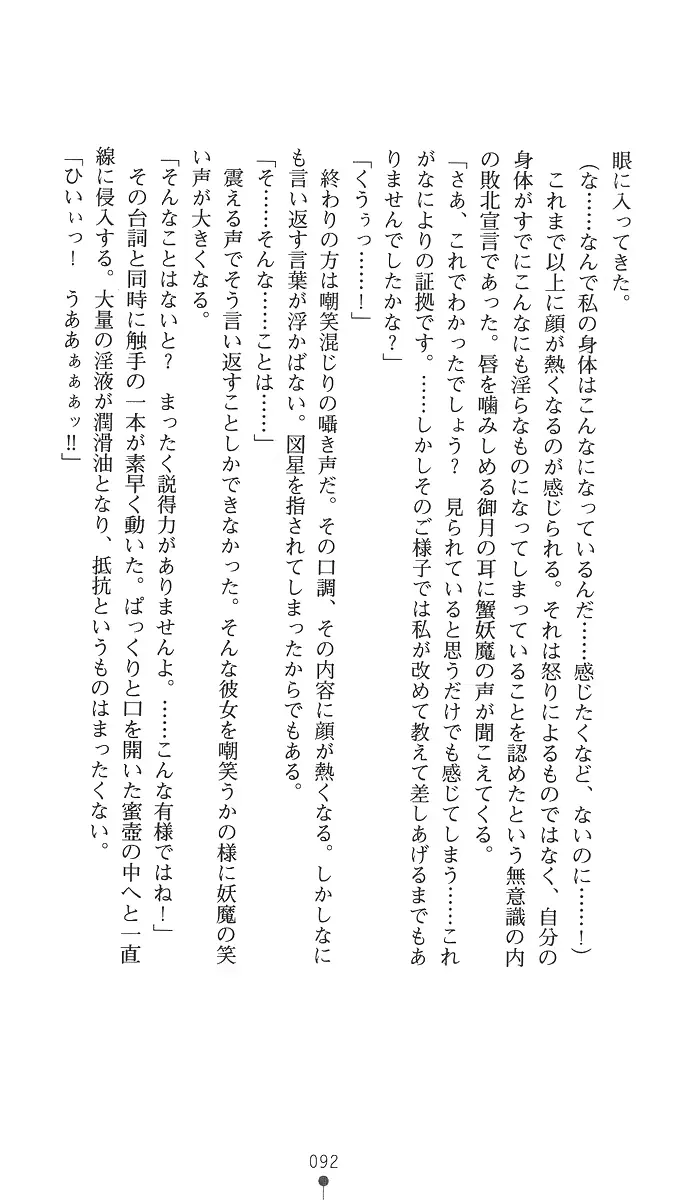 眼に入ってきた。
(な……なんで私の身体はこんなになっているんだ……感じたくなど、ないのに……！)
これまで以上に顔が熱くなるのが感じられる。それは怒りによるものではなく、自分の
身体がすでにこんなにも淫らなものになってしまっていることを認めたという無意識の内
の敗北宣言であった。唇を噛みしめる御月の耳に蟹妖魔の声が聞こえてくる。
「さあ、これでわかったでしょう？　見られていると思うだけでも感じてしまう……これ
がなによりの証拠です。……しかしそのご様子では私が改めて教えて差しあげるまでもあ
りませんでしたかな？」
「くうぅっ……！」
終わりの方は嘲笑混じりの囁き声だ。その口調、その内容に顔が熱くなる。しかしなに
も言い返す言葉が浮かばない。図星を指されてしまったからでもある。
「そ……そんな……ことは……」
震える声でそう言い返すことしかできなかった。そんな彼女を嘲笑うかの様に妖魔の笑
い声が大きくなる。
「そんなことはないと？　まったく説得力がありませんよ。……こんな有様ではね！」
その台詞と同時に触手の一本が素早く動いた。ぱっくりと口を開いた蜜壺の中へと一直
線に侵入する。大量の淫液が潤滑油となり、抵抗というものはまったくない。
「ひいぃっ！　うああぁぁぁッ!!」
092